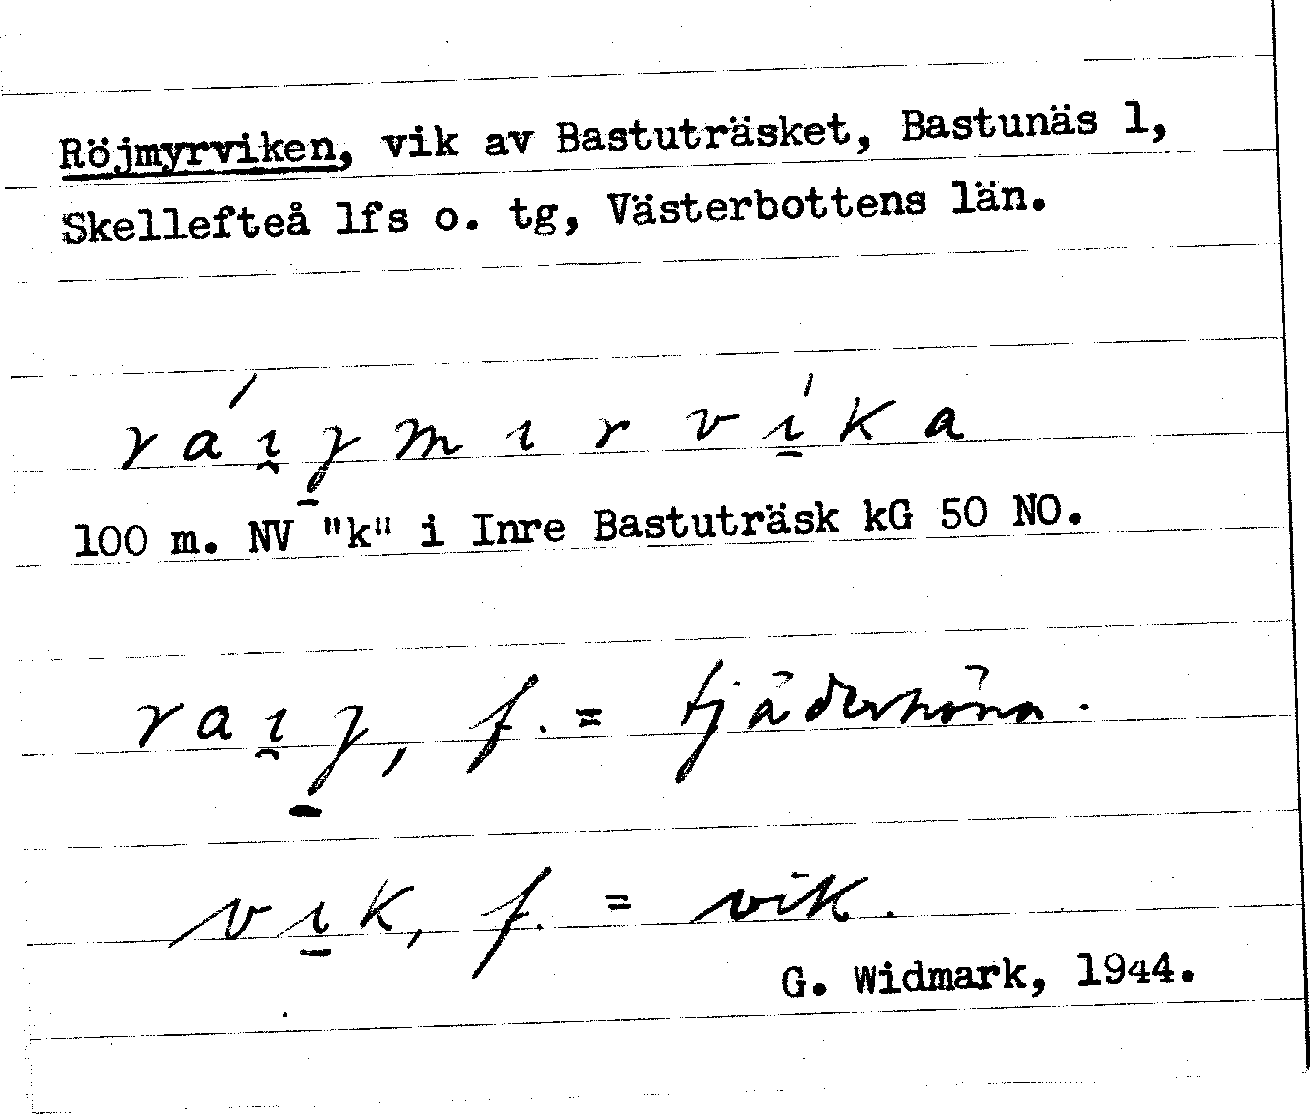 Röjmyrviken, vik av Bastuträsket, Bastunäs 1,
Skellefteå lfs o. tg, Västerbottens län.
ráı̯ȷ̱mırvı̱́ka
100 m. NV "k" i Inre Bastuträsk kG 50 NO.
raı̯ȷ̱, f. = tjäderhöna.
vı̱k, f. = vik.
G. Widmark, 1944.